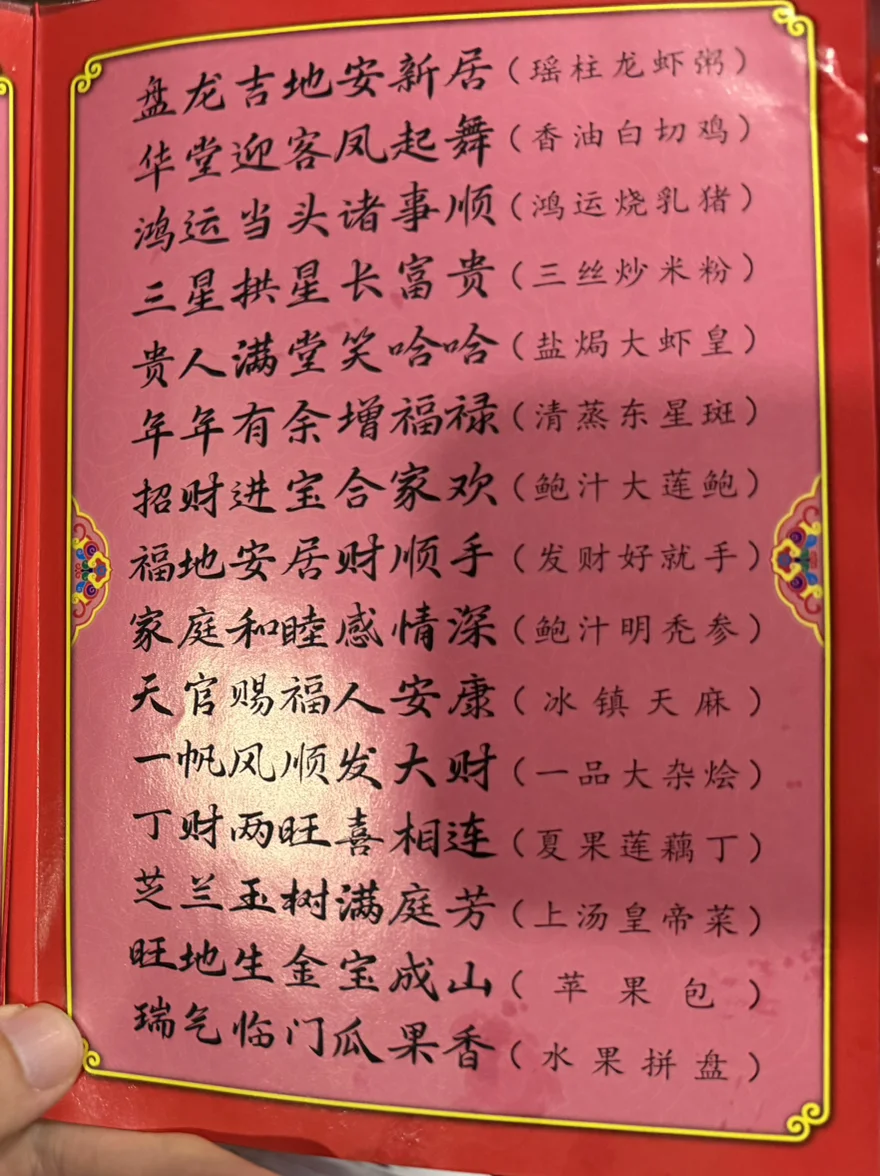 盘龙吉地安新居(瑶柱龙虾粥)
华堂迎客凤起舞(香油白切鸡)
鸿运当头诸事顺(鸿运烧乳猪)
三星拱星长富贵(三丝炒米粉)
贵人满堂笑哈哈(盐焗大虾皇)
年年有余增福禄(清蒸东星斑)
招财进宝合家欢(鲍汁大莲鲍)
福地安居财顺手(发财好就手)
家庭和睦感情深(鲍汁明秃参)
天官赐福人安康(冰镇天麻)
一帆风顺发大财(一品大杂烩)
丁财两旺喜相连(夏果莲藕丁)
芝兰玉树满庭芳(上汤皇帝菜)
旺地生金宝成山(苹果包)
瑞气临门瓜果香(水果拼盘)